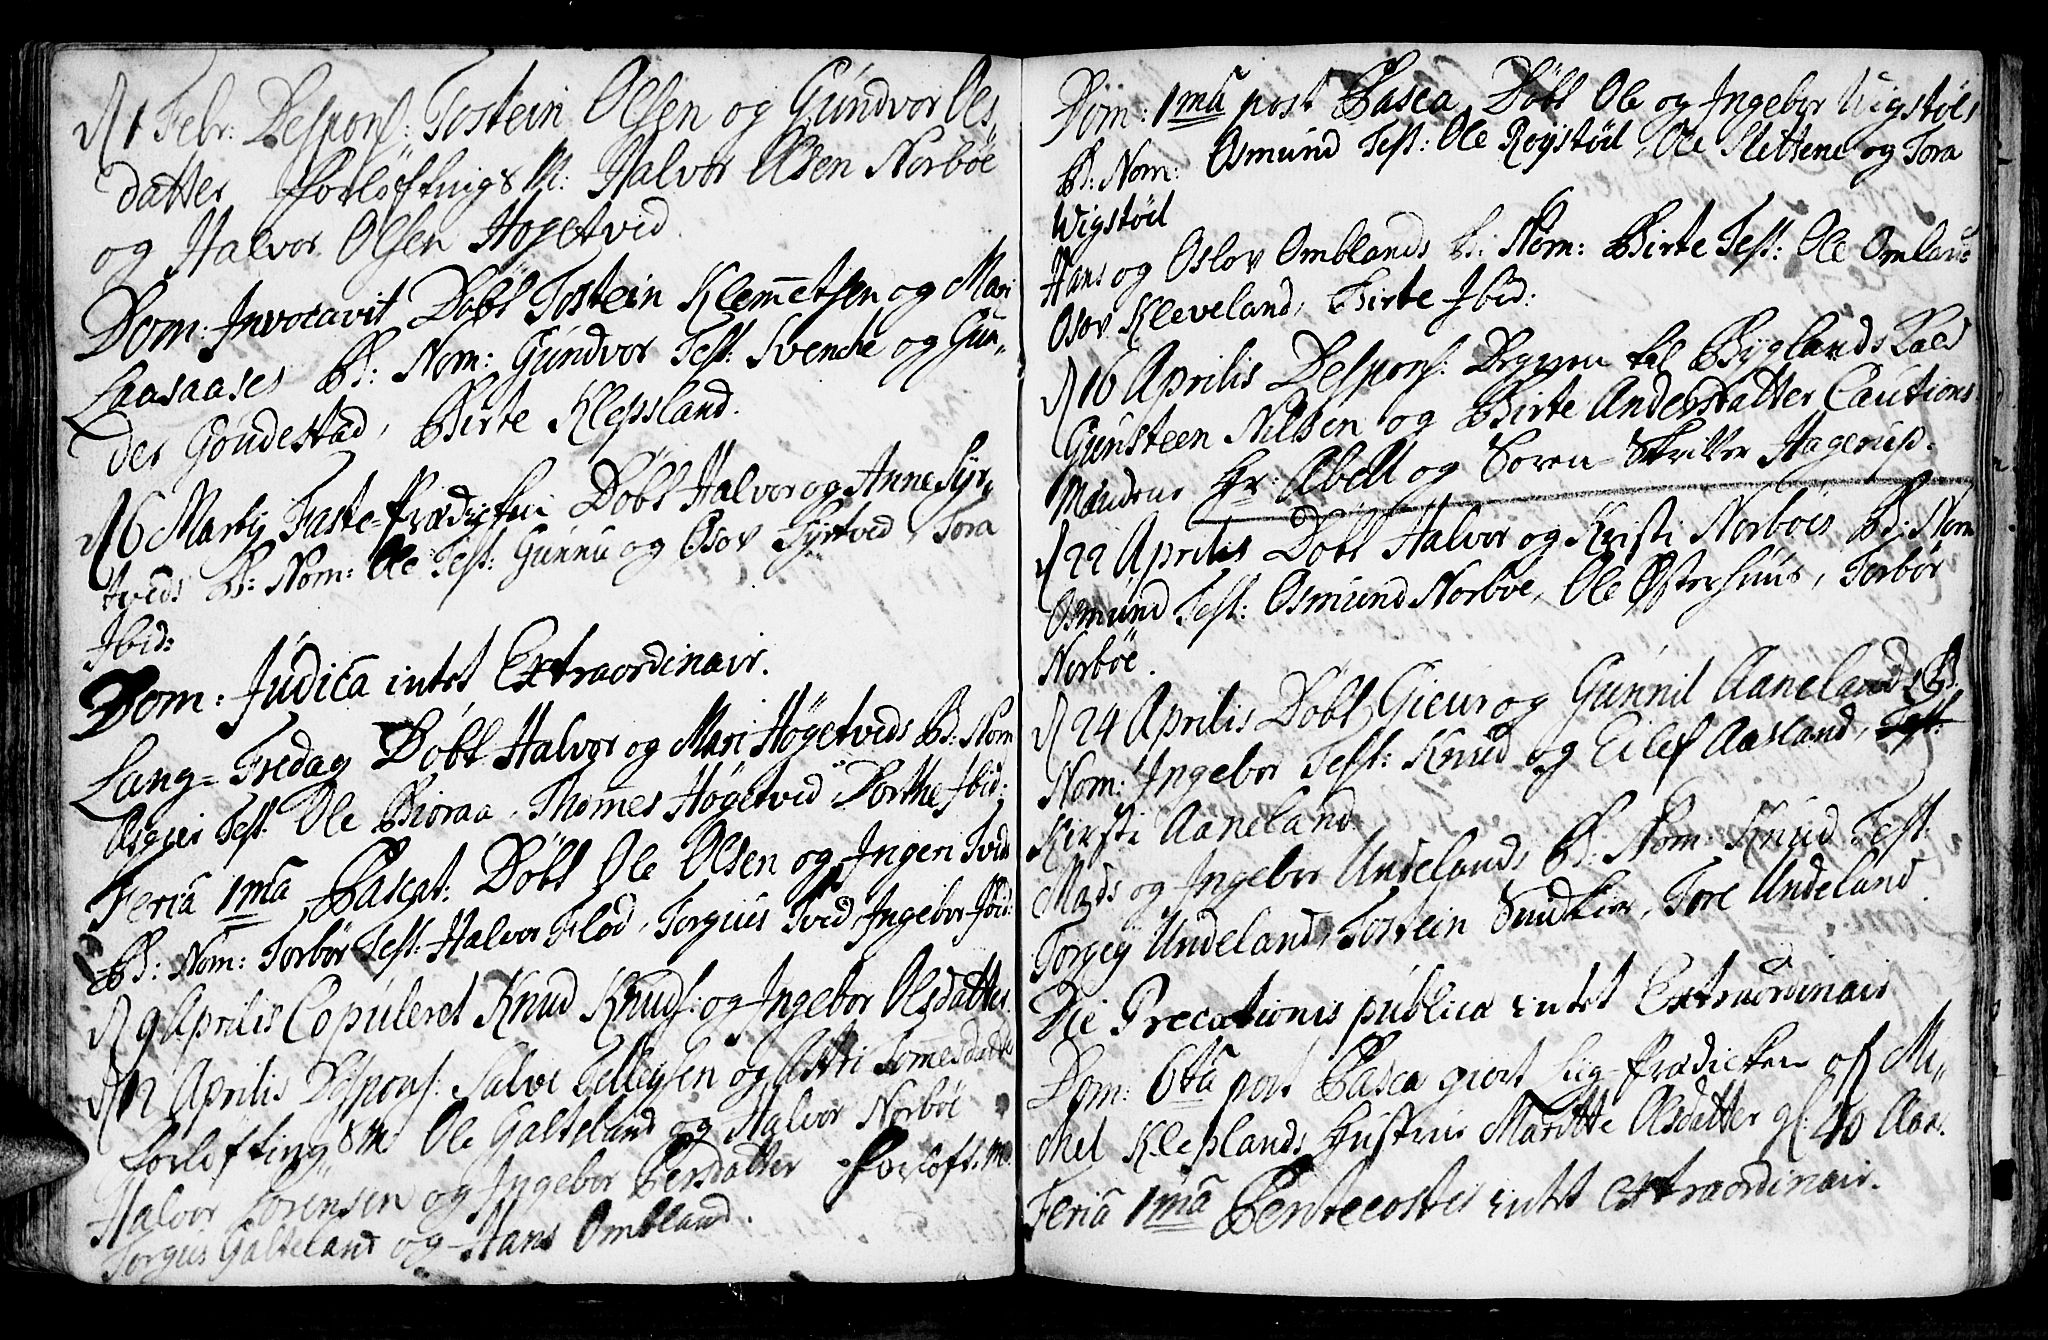 d 1 Febr: Despons: Tostein Olsen og Gundvor Ols,,
datter forløftnigs M: Halvor Olsen Norbøe
og Halvor Olsen Høgetvid.
Dom: Invocavit Døbt Tostein Klemetsen og Mari
Laasaases B: Nom: Gundvor Test: Svenche og Gun,,
der Goudestad, Birte Klepsland.
d 6 Martij Faste-Prædicken Døbt Halvor og Anne Syr,,
tveds B: Nom: Ole Test: Gunnu og Osov Syrtved, Tora
Ibid:
Dom: Judica intet Extraordinair.
Lang-Fredag Døbt Halvor og Mari Høgetvids B: Nom
Asgier Test: Ole Bioraa, Thomes Høgetvid Dorthe Ibid:
Feria 1ma Pascat: Døbt Ole Olsen og Ingeri Tvids
B: Nom: Torbør Test: Halvor Flod, Torgius Tvid Ingebor Ibid:
d 9 Aprilis Copuleret Knud Knuds: og Ingebor Olsdatter.
d 12 Aprilis Despons: Salve Tellegsen og Atti Tomesdatter
Forløftings M Ole Galteland og Halvor Norbøe
Halvor Sørensen og Ingebor Persdatter Forløft: M:
Torgius Galteland og Hans Ombland.
Dom: 1ma post Pasca Døbt Ole og Ingebor Wigstøls
B: Nom: Osmund Test: Ole Røystøil, Ole Slettene og Tora
Wigstøil
Hans og Oslov Omblands B: Nom: Birte Test: Ole Omlan:
Osov Kleveland, Birte Ibid:
d 16 Aprilis Despons: Degnen til Byglands Kald
Gunsteen Nilsen og Birte Andersdatter Cautions
Mændene Hr: Abell og Soren Skriver Hagerup.
d 22 Aprilis Døbt Halvor og Kristi Norbøes B: Nom
Osmund Test: Osmund Norbøe, Ole Østerhuus, Torbør
Norbøe.
d 24 Aprilis Døbt Gieur og Gunnil Aanelands B:
Nom: Ingebor Test: Knud og Eilef Aasland, Test:
Kirsti Aaneland
Mads og Ingebor Undelands B: Nom: Knud Test:
Torgeg Undeland, Tostein Tore Undeland.
Die Precationis publica intet Extraordinair
Dom: 6ta post Pasca giort Liig-Prædicken of Mi,,
chel Kleplands Hustrue Maritte Olsdatter gl: 40 Aar.
Feria 1ma Pentecostes intet extraordinair.